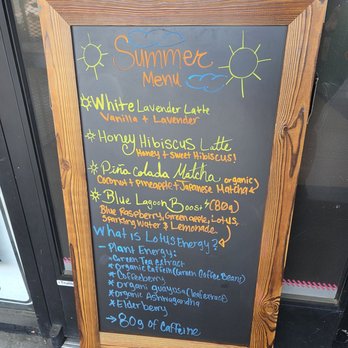 Summer
Menu
White Lavender Latte
Vanilla + Lavender
Honey Hibiscus Latte
Honey + Sweet Hibiscus!
Piña Colada Matcha organic
Coconut + Pineapple + Japanese Matcha
Blue Lagoon Boost (80g)
Blue Raspberry, Green apple, Lotus,
Sparkling Water & Lemonade
What is Lotus Energy?
- Plant Energy:
* Green Tea extract
* Organic Caffein (Green Coffee Beans)
* Coffeeberry
* Organi guayusa
* Organic Ashwagandha
* Elderberry
→ 80g of Caffeine